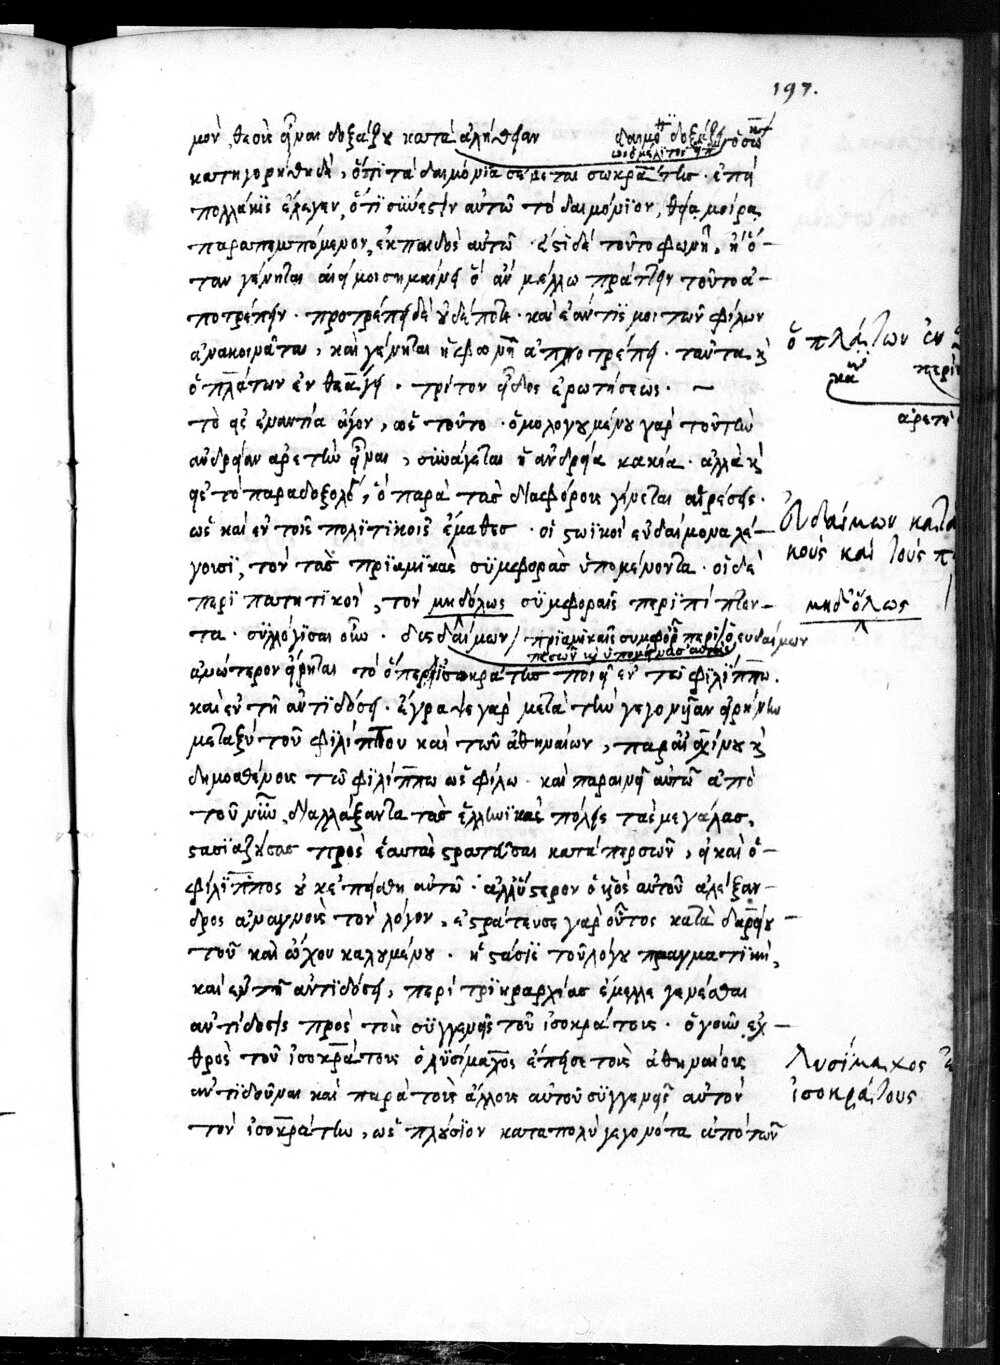 197.
μον θεοὺς εἶναι δοξάζου κατὰ ἀλήθειαν
κατηγορήθη δὲ, ὅτι τὰ δαιμόνια σέβεται σωκράτης. ἐπεὶ
πολλάκις ἔλεγεν, ὅτι σύνεστιν αὐτῷ τὸ δαιμόνιον, θεία μοίρα
παραπεμπόμενον, ἐκ παιδὸς αὐτῷ. ἔστι δὲ τοῦτο φωνὴ, ἡ ὅ-
ταν γένηται ἀεί μοι σημαίνει ὃ ἂν μέλλω πράττειν τοῦτο ἀ-
ποτρέπειν. προτρέπει δὲ οὐδέποτε. καὶ ἐάν τις μοι τῶν φίλων
ἀνακοινῶται, καὶ γένηται ἡ φωνὴ ἀποτρέπει. ταῦτα καὶ
ὁ πλάτων ἐν θεάγει. τρίτον εἶδος ἐρωτήσεως. —
τὸ εἰς ἐναντία ἄγον, ὡς τοῦτο. ὁμολογουμένου γὰρ τοῦ τὴν
ἀνδρείαν ἀρετὴν εἶναι, συνάγεται ἡ ἀνδρεία κακία. ἀλλὰ καὶ
εἰς τὸ παράδοξον, ὃ παρὰ τὰς διαφόρους γίνεται αἱρέσεις.
ὡς καὶ ἐν τοῖς πολιτικοῖς ἔμαθες. οἱ στωϊκοὶ εὐδαίμονα λέ-
γουσι, τὸν τὰς πριαμικὰς συμφορὰς ὑπομένοντα. οἱ δὲ
περιπατητικοὶ, τὸν μηδόλως συμφοραῖς περιπίπτον-
τα. συλλόγισαι οὕτω.
ἀνώτερον εἴρηται τὸ ὅπερ ἰσοκράτης ποιεῖ ἐν τῷ φιλίππῳ.
καὶ ἐν τῇ ἀντιδόσει. ἔγραψε γὰρ μετὰ τὴν γεγονυῖαν εἰρήνην
μεταξὺ τοῦ φιλίππου καὶ τῶν ἀθηναίων, παρ' αἰσχίνου καὶ
δημοσθένους τῷ φιλίππῳ ὡς φίλῳ. καὶ παραινεῖ αὐτῷ ἀπὸ
τοῦ νῦν, διαλλάξαντα τὰς ἑλληνικὰς πόλεις τὰς μεγάλας,
στασιαζούσας πρὸς ἑαυτὰς στρατεῦσαι κατὰ περσῶν, εἰ καὶ ὁ-
φίλιππος οὐκ ἐπείσθη αὐτῷ. ἀλλ' ὕστερον ὁ υἱὸς αὐτοῦ ἀλέξαν-
δρος ἀναγνοὺς τὸν λόγον, ἐστράτευσε γὰρ οὗτος κατὰ δαρείου
τοῦ καὶ ὤχου καλουμένου. ἡ στάσις τοῦ λόγου πραγματικὴ,
καὶ ἐν τῇ ἀντιδόσει, περὶ τριηραρχίας ἔμελλε γενέσθαι
ἀντίδοσις πρὸς τοὺς συγγενεῖς τοῦ ἰσοκράτους. ὁ γοῦν ἐχ-
θρὸς τοῦ ἰσοκράτους ὁ λυσίμαχος ἔπεισε τοὺς ἀθηναίους
ἀντιδοῦναι καὶ παρὰ τοὺς ἄλλους αὐτοῦ συγγενεῖς αὐτὸν
τὸν ἰσοκράτην, ὡς πλούσιον καταπολὺ γεγονότα ἀπὸ τῶν
ὁ πλάτων ἐν
ἀρετὴ
εὐδαίμων κατὰ
κοὺς καὶ τοὺς
μηδ' ὅλως
Λυσίμαχος
ἰσοκράτους